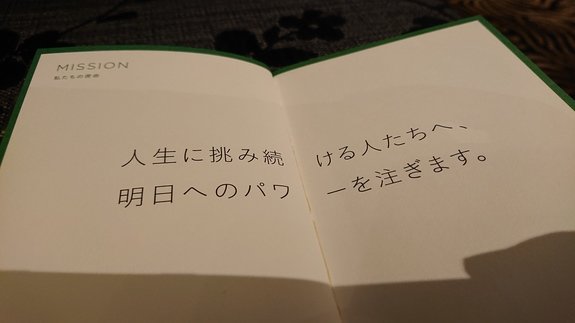 MISSION
私たちの使命
人生に挑み続ける人たちへ、
明日へのパワーを注ぎます。